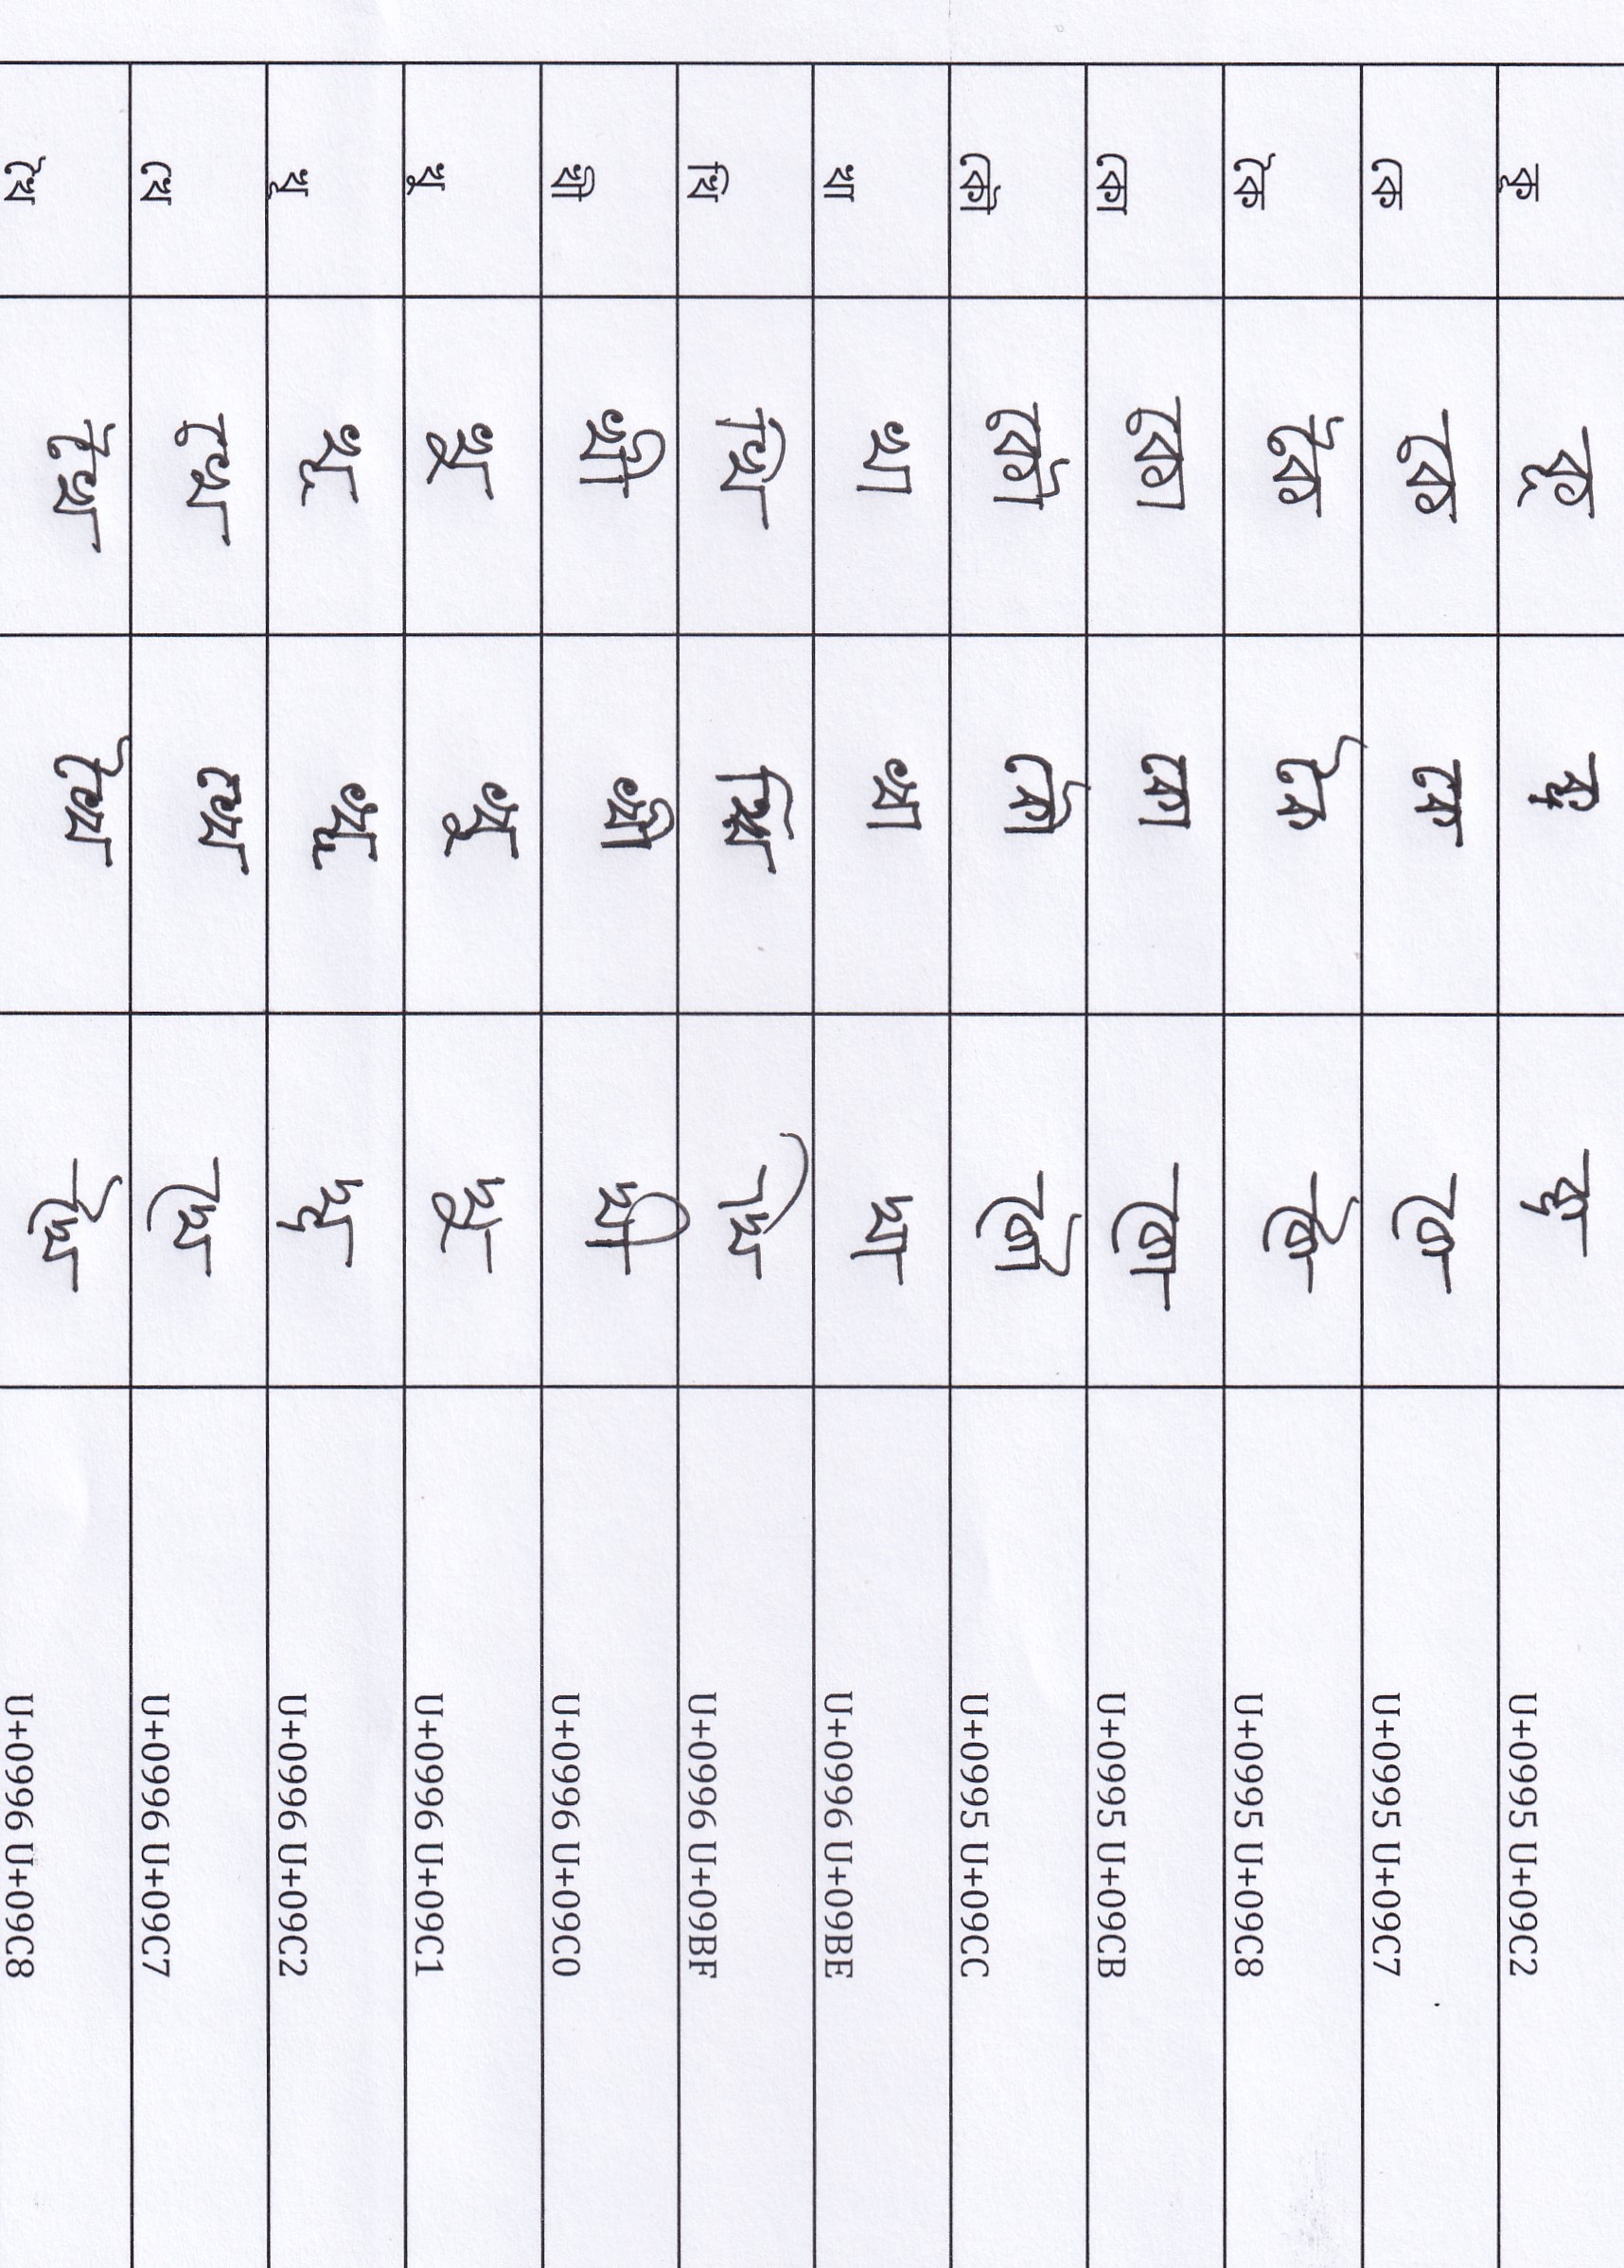 কূ কূ কূ কূ U+0995 U+09C2
কে কে কে কে U+0995 U+09C7
কৈ কৈ কৈ কৈ U+0995 U+09C8
কো কো কো কো U+0995 U+09CB
কৌ কৌ কৌ কৌ U+0995 U+09CC
খা খা খা খা U+0996 U+09BE
খি খি খি খি U+0996 U+09BF
খী খী খী খী U+0996 U+09C0
খু খু খু খু U+0996 U+09C1
খূ খূ খূ খূ U+0996 U+09C2
খে খে খে খে U+0996 U+09C7
খৈ খৈ খৈ খৈ U+0996 U+09C8